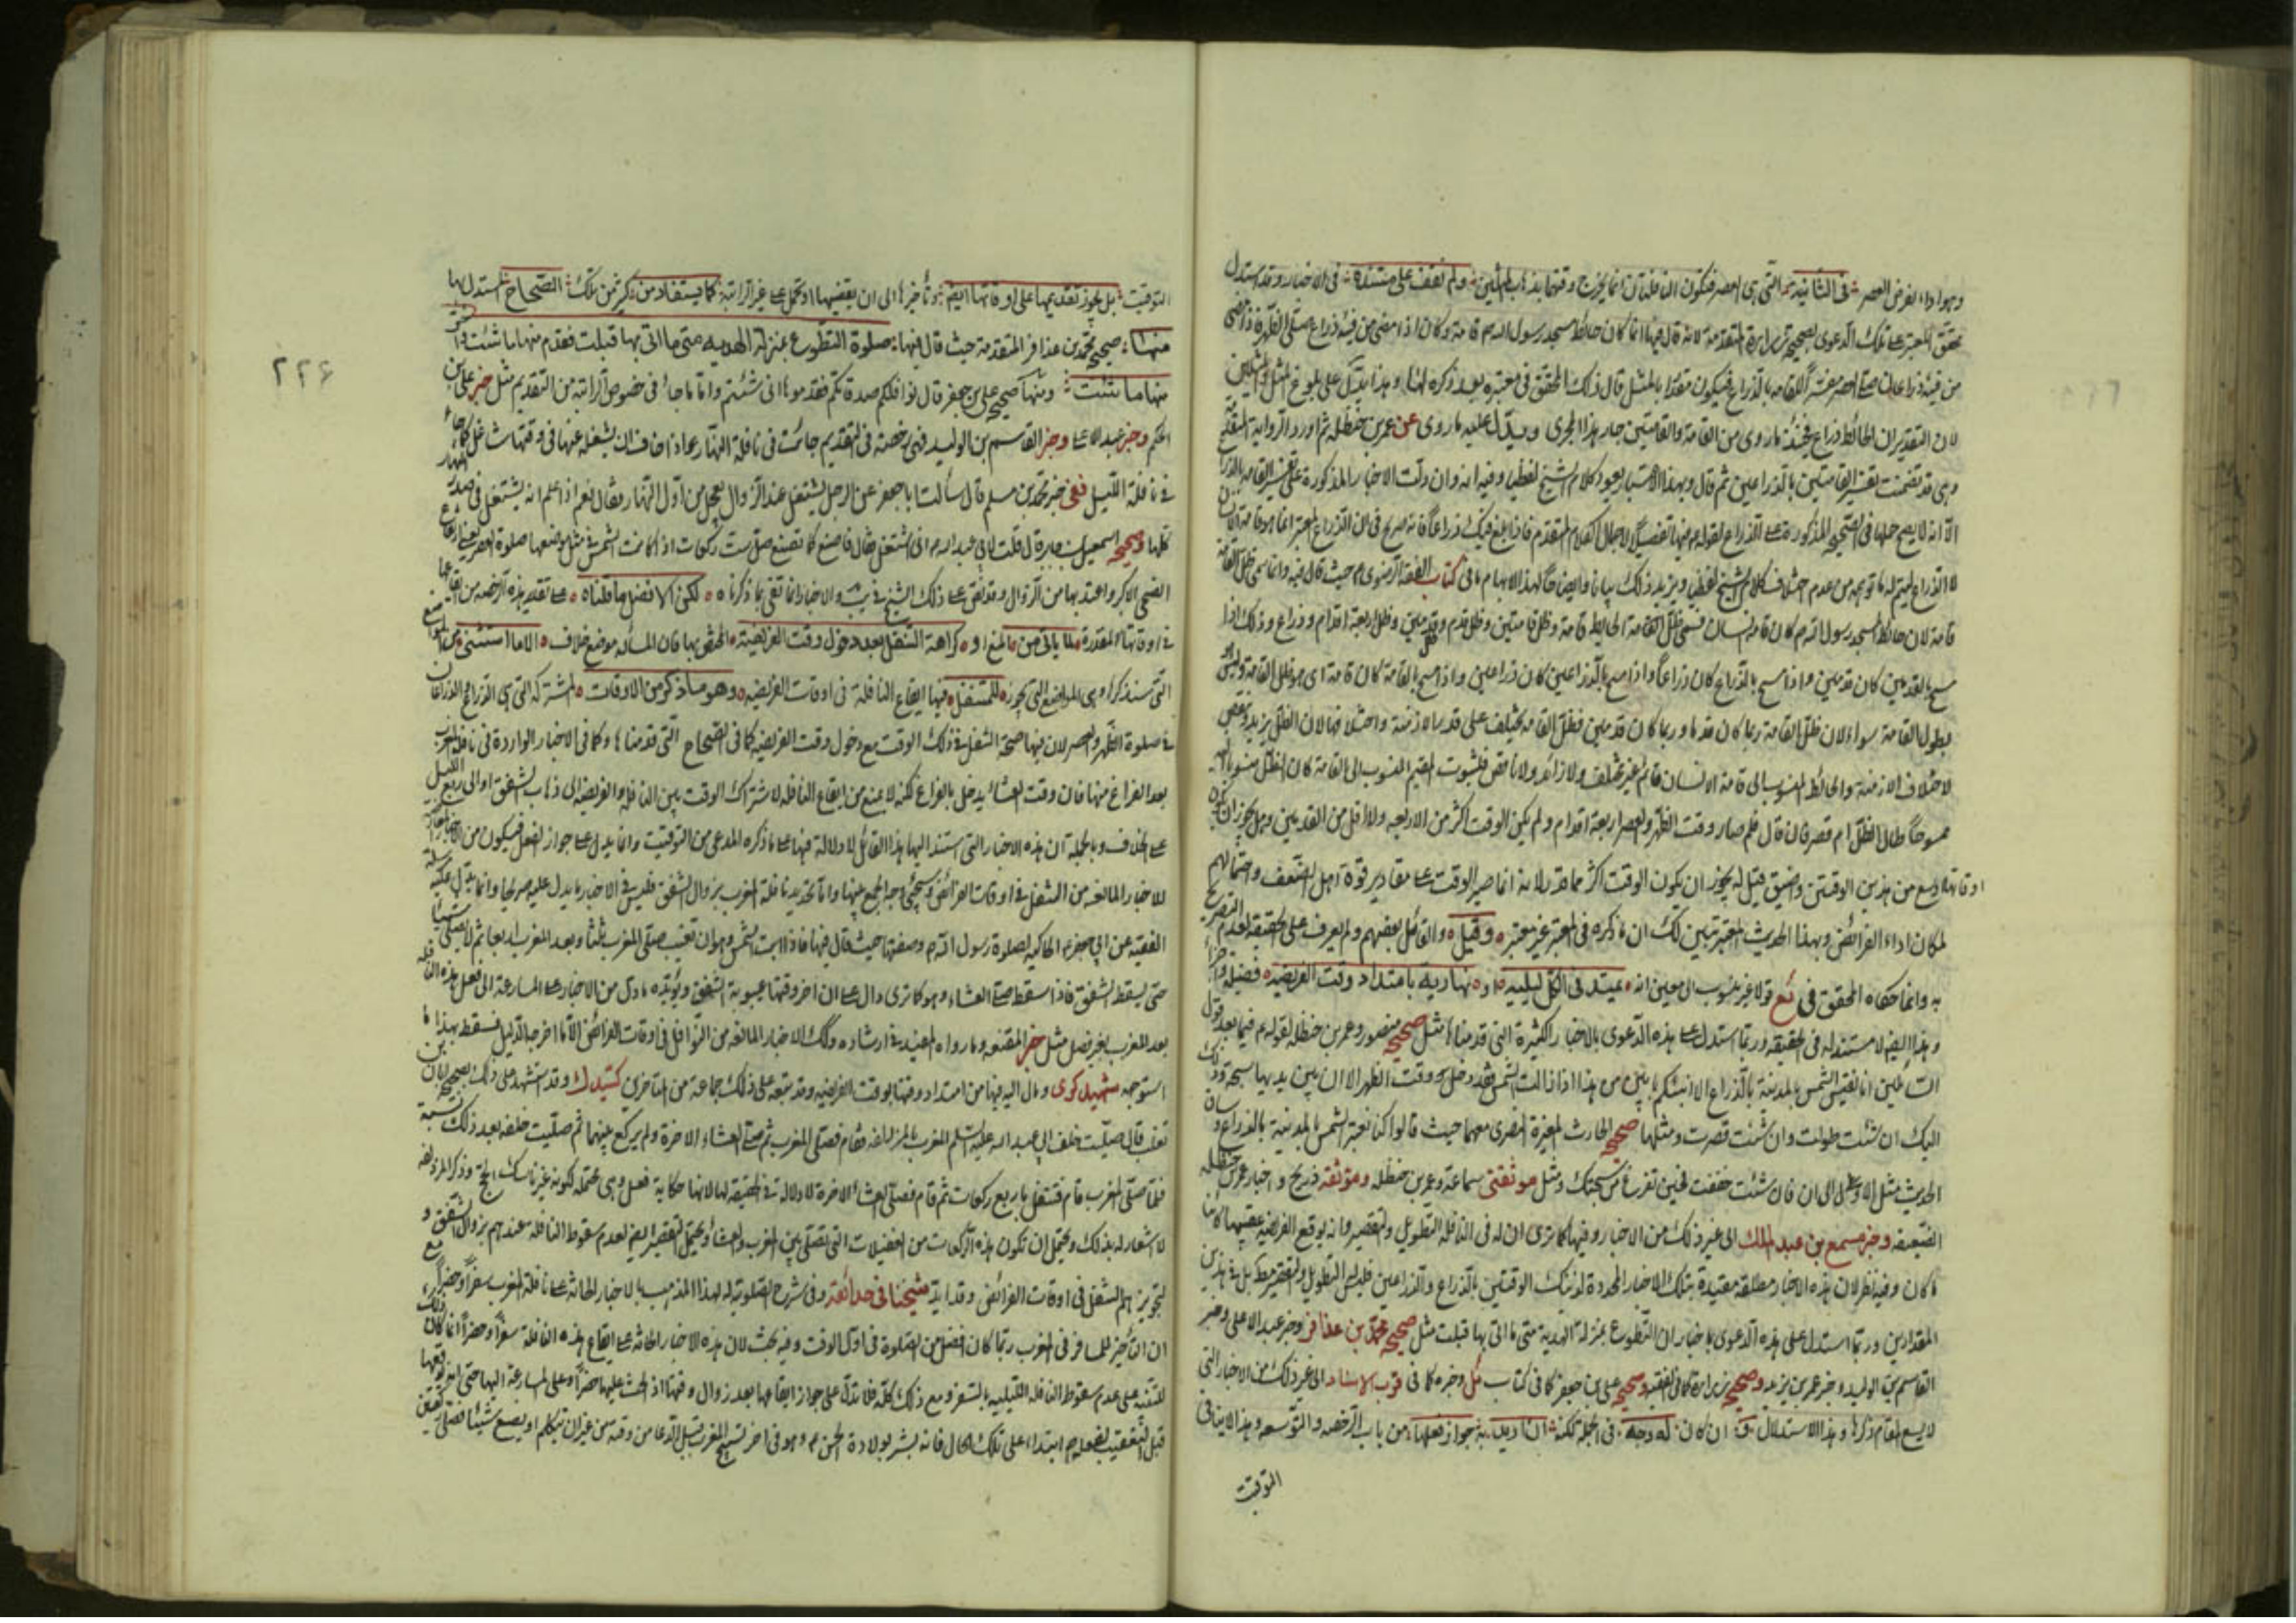 وهو اداء لفرض العصر في الثانية التي هي العصر فتكون النافلتان انما يخرج وقتهما بذهاب المثلين ولم نقف على مستنده في الاخبار وقد استدل
محقق المعتبر على تلك الدعوى بصحيح زرارة المتقدمة لانه قال فيها انما كان حائط مسجد رسول الله ص قامة وكان اذا مضى من فيئه ذراع صلى الظهر فاذا مضى
من فيئه ذراعان صلى العصر بتفسير القامة بالذراع فيكون مقدرا بالمثل قال ذلك المحقق في معتبره بعد ذكره لهذا وهذا يدل على بلوغ المثل والمثلين
لان التقدير ان الحائط ذراع فحينئذ ما روى من القامة والقامتين جار هذا المجرى ويدل عليه ما روى عن عمر بن حنظلة ثم اورد الرواية المتقدمة
وهي قد تضمنت تفسير القامتين بالذراعين ثم قال وبهذا الاعتبار يعود كلام الشيخ لفظيا وفيه انه وان دلت الاخبار المذكورة على تفسير القامة بالذراع
الا انه لا يصح حملها في الصحيح المذكورة على الذراع لقوله ع فيها تفصيلا لاجمال الكلام المتقدم فاذا بلغ فيئك ذراعا فانه صريح في ان الذراع المعتبر انما هو قامة الانسان
لا الذراع ويزيد ذلك بيانا وايضاحا لهذا الابهام ما في كتاب الفقه الرضوي حيث قال فيه وانما سمى ظل القامة
قامة لان حائط المسجد رسول الله ص كان قامة انسان فسمى ظل الحائط ظل قامة وظل قامتين وظل قدم وظل قدمين وظل اربعة اقدام وذراع وذلك اذا
مسح بالقدمين كان قدمين واذا مسح بالذراع كان ذراعا واذا مسح بالذراعين كان ذراعين واذا مسح بالقامة كان قامة اى هو ظل القامة وليس هو
بطول القامة سواء لان ظل القامة ربما كان قدما وربما كان قدمين فظل القامة مختلف على قدر الازمنة واختلافها لان الظل يزيد وينقص
لاختلاف الازمنة والحائط المنسوب الى قامة الانسان قائم غير مختلف ولا زائد ولا ناقص فلثبوت المقيم المنسوب الى القامة كان الظل منسوبا اليه
ممسوحا طال الظل ام قصر فان قال فلم صار وقت الظهر والعصر اربعة اقدام ولم يكن الوقت اكثر من الاربعة ولا اقل من القدمين وهل يجوز ان يكون
اوقاتها اوسع من هذين الوقتين واضيق قيل له يجوز ان يكون الوقت اكثر مما قدر لانه انما صير الوقت على مقادير قوة اهل الضعف واحتمالهم
لمكان اداء الفرائض وبهذا الحديث المعتبر تبين لك ان ما ذكره في المعتبر غير معتبر وقيل والقائل بعضهم ولم يعرف على الحقيقة لعدم التصريح
به وانما حكاه المحقق في يع قولا غير منسوب الى معين انه يمتد في الكل ليلية او نهارية بامتداد وقت الفريضة فضيلة واجزاء
وهذا ايضا لا مستند له في الحقيقة وربما استدل على هذه الدعوى بالاخبار الكثيرة التي قدمناها مثل صحيح منصور وعمر بن حنظلة لقوله ع فيها بعد قول
السائلين انا نقيس الشمس بالمدينة بالذراع الا انبئكم بابين من هذا اذا زالت الشمس فقد دخل وقت الظهر الا ان بين يديها سبحة وذلك
اليك ان شئت طولت وان شئت قصرت ومثلها صحيح الحارث بن المغيرة النصرى معهما حيث قالوا كنا نعتبر الشمس بالمدينة بالذراع وساق
الحديث مثل الاولى الى ان قال فان شئت خففت فحين تفرغ من سبحتك ومثل موثقتى سماعة وعمر بن حنظلة وموثقة ذريح واخبار عمر بن حنظلة
الضعيفة وخبر مسمع بن عبد الملك الى غير ذلك من الاخبار وفيها كما ترى ان له في النافلة التطويل والتقصير وان يوقع الفريضة عقيبها كائنا
ما كان وفيه نظر لان هذه الاخبار مطلقة مقيدة بتلك الاخبار المحددة لذينك الوقتين بالذراع والذراعين فليس التطويل والتقصير مطلقا بل في هذين
المقدارين وربما استدل على هذه الدعوى باخبار ان التطوع بمنزلة الهدية متى ما اتى بها قبلت مثل صحيح محمد بن عذافر وخبر عبد الاعلى وخبر
القاسم بن الوليد وخبر عمر بن يزيد وصحيح زرارة كما في الفقيه وصحيح علي بن جعفر كما في كتاب ئل وخبره كما في قرب الاسناد الى غير ذلك من الاخبار التي
لا يسع المقام ذكرها وهذا الاستدلال ان كان له وجه في الجملة لكنه ان اريد به جواز فعلها من باب الرخصة والتوسعة وهذا لا ينافي
التوقيت
٢٢٦
التوقيت بل يجوز تقديمها على اوقاتها ايضا وتأخيرها الى ان يقضيها كما يستفاد من كثير من تلك الصحاح المستدل بها
منها صحيح محمد بن عذافر المتقدمة حيث قال فيها صلوة التطوع بمنزلة الهدية متى ما اتى بها قبلت فقدم منها ما شئت واخر
منها ما شئت ومنها صحيح علي بن جعفر قال نوافلكم صدقاتكم فقدموها انى شئتم واما ما جاء في خصوص الراتبة من التقديم مثل خبر علي بن
الحكم وخبر عبد الاعلى وخبر القاسم بن الوليد فهي رخصة في التقديم جائت في نافلة النهار عند اذا خاف ان يشغل عنها في وقتها شاغل كما جاء
في نافلة الليل ففي خبر محمد بن مسلم قال سألت ابا جعفر عن الرجل يشتغل عند الزوال يعجل من اول النهار فقال نعم اذا علم انه يشتغل في صدر النهار
كلها وصحيح اسمعيل بن جابر قال قلت لابي عبد الله ع انى اشتغل فقال فاصنع كما نصنع صل ست ركعات اذا كانت الشمس في مثل موضعها صلوة العصر يعني ارتفاع
الضحى الاكبر واعتد بها من الزوال وقد نص على ذلك الشيخ في يب والاخبار انما تفى بما ذكرناه لكن الافضل ما قلناه على تقدير هذه الرخصة من ايقاعها
في اوقاتها المقدرة لما يأتي من المنع او كراهة التنفل بعد دخول وقت الفريضة المختص بها فان المسألة موضع خلاف الا ما استثنى من المواضع
التي سنذكرها وهي المواضع التي يجوز للمتنفل فيها ايقاع النافلة في اوقات الفريضة وهو ما ذكر من الاوقات المشتركة التي هي الذراع والذراعان
في صلوة الظهر والعصر لان فيها صحة التنفل في ذلك الوقت مع دخول وقت الفريضة كما في الصحاح التي قدمناها وكما في الاخبار الواردة في نافلة المغرب
بعد الفراغ منها فان وقت العشاء يدخل بالفراغ لكنه لا يمنع من ايقاع النافلة لاشتراك الوقت بين النافلة والفريضة الى ذهاب الشفق او الى ربع الليل
على الخلاف وبالجملة ان هذه الاخبار التي استند اليها هذا القائل لا دلالة فيها على ما ذكره المدعى من التوقيت وانما يدل على جواز الفعل فيكون من الاخبار المعارضة
للاخبار المانعة من التنفل في اوقات الفرائض وسيجئ وجه الجمع بينها واما تحديد نافلة المغرب بزوال الشفق فليس في الاخبار ما يدل عليه صريحا وانما يدل عليه مرسلة
الفقيه عن ابي جعفر ع الحاكية لصلوة رسول الله ص وصفتها حيث قال فيها فاذا ابت الشمس وهو ان تغيب صلى المغرب ثلثا وبعد المغرب اربعا ثم لا يصلى شيئا
حتى يسقط الشفق فاذا سقط صلى العشاء وهو كما ترى دال على ان اخر وقتها غيبوبة الشفق ويؤيده ما دل من الاخبار على المسارعة الى فعل هذه النافلة
بعد المغرب بغير فصل مثل خبر المقنعة وما رواه المفيد في ارشاده وتلك الاخبار المانعة من النوافل في اوقات الفرائض الا ما اخرجه الدليل فسقط بهذا ما
استوجه شهيد كرى ومال اليه فيها من امتداد وقتها بوقت الفريضة وقد تبعه على ذلك جماعة من المتأخرين كسيد ك وقد استشهد على ذلك بصحيح ابان بن
تغلب قال صليت خلف ابي عبد الله عليه السلم المغرب بالمزدلفة فقام فصلى المغرب ثم صلى العشاء الاخرة ولم يركع بينهما ثم صليت خلفه بعد ذلك بسنة
فلما صلى المغرب قام فتنفل باربع ركعات ثم قام فصلى العشاء الاخرة لا دلالة في الحقيقة لها لانها حكاية فعل وهي محتملة لكونه غير ناسك الحج وذكر المزدلفة
لا شعار له بذلك ويحتمل ان تكون هذه الركعات من الغفيلات التي تصلى بين المغرب والعشاء ويحتمل التقصير ايضا لعدم سقوط النافلة عندهم بزوال الشفق و
لتجويزهم التنفل في اوقات الفرائض وقد ايد شيخنا في حدائقه وفي شرح الصلوتية له لهذا المذهب بالاخبار الحاثة على نافلة المغرب سفرا وحضرا مع
ان التأخير للمسافر في المغرب ربما كان افضل من الصلوة في اول الوقت وفيه بحث لان هذه الاخبار الحاثة على ايقاع هذه النافلة سفرا وحضرا انما كان ذلك
للتنبيه على عدم سقوط النافلة الليلية بالسفر ومع ذلك كله فلا تدل على جواز ايقاعها بعد زوال وقتها اذ الحث عليها حضرا وعلى المسارعة اليها حتى انه يوقعها
قبل التعقيب لفعله ص ابتداء على تلك الحال فانه بشر بولادة الحسن ع وهو في اخر تسبيح المغرب قبل الدعا من وقته من غير ان يتكلم او يصنع شيئا فصلى ركعتين